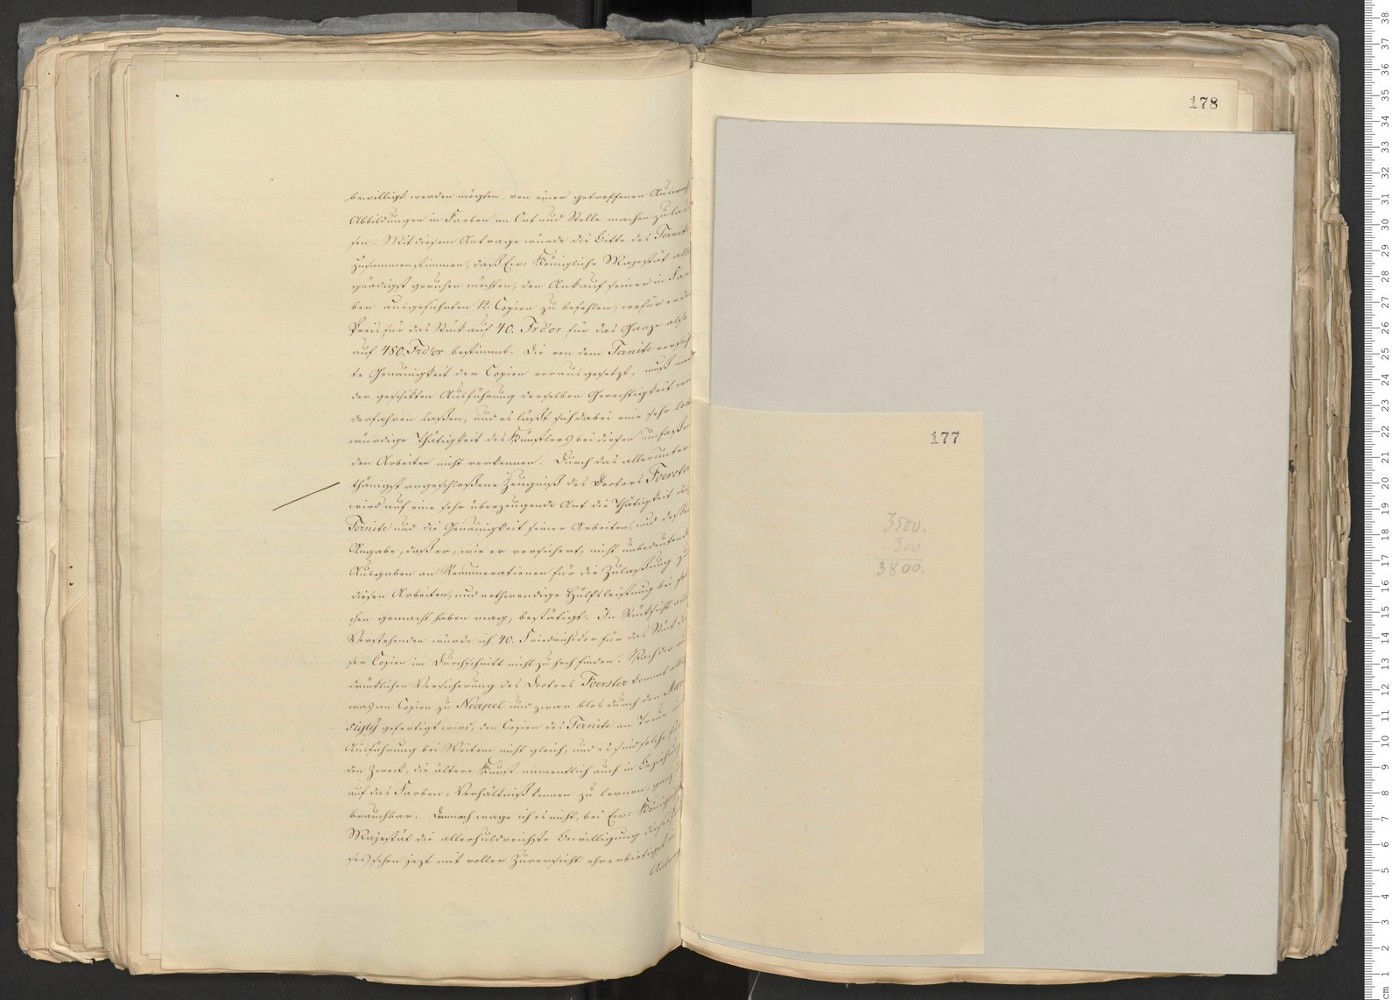 bewilligt werden mögten, von einer getroffenen Auswahl
Abbildungen in Farben an Ort und Stelle machen zu las
sen. Mit diesem Antrage würde die Bitte des Ternite
zusammenstimmen, daß Ew: Königliche Majestät aller
gnädigst geruhen möchten, den Ankauf seiner in Far
ben ausgeführten 12. Copien zu befehlen, wofür er den
Preis für das Stück auf 40. Frd'or für das Ganze also
auf 480. Frd'or bestimmt. Die von dem Ternite versicher
te Genauigkeit der Copien vorausgesetzt, muß man
der geschickten Ausführung derselben Gerechtigkeit wie
derfahren laßen, und es läßt sich dabei eine sehr lobens
würdige Thätigkeit des Künstlers bei diesen umfaßen
den Arbeiten nicht verkennen. Durch das allerunter
thänigst angeschloßene Zeugniß des Doctors Foerster
wird auf eine sehr überzeugende Art die Thätigkeit des
Ternite und die Genauigkeit seiner Arbeiten, und deßen
Angabe, daß er, wie er versichert, nicht unbedeutende
Ausgaben an Remunerationen für die Zulaßung zu
diesen Arbeiten, und nothwendige Hülfsleistung bei sol
chen gemacht haben mag, bestätigt. In Rücksicht alles
Vorstehenden würde ich 40. Friedrichsdor für das Stück die
ser Copien im Durchschnitt nicht zu hoch finden. Nach der aus
drücklichen Versicherung des Doctors Foerster kommt alles
was an Copien zu Neapel und zwar blos durch den
gefertigt wird, den Copien des Ternite an Treue
Ausführung bei Weitem nicht gleich, und es sind solche für
den Zweck, die ältere Kunst namentlich auch in Beziehung
auf das Farben-Verhältniß kennen zu lernen, ganz
brauchbar. Dennoch wage ich es nicht, bei Ew: Königlichen
Majestät die allerhuldreichste Bewilligung
schon jezt mit voller Zuversicht ehrerbietigst
178
177
3500.
300
3800.